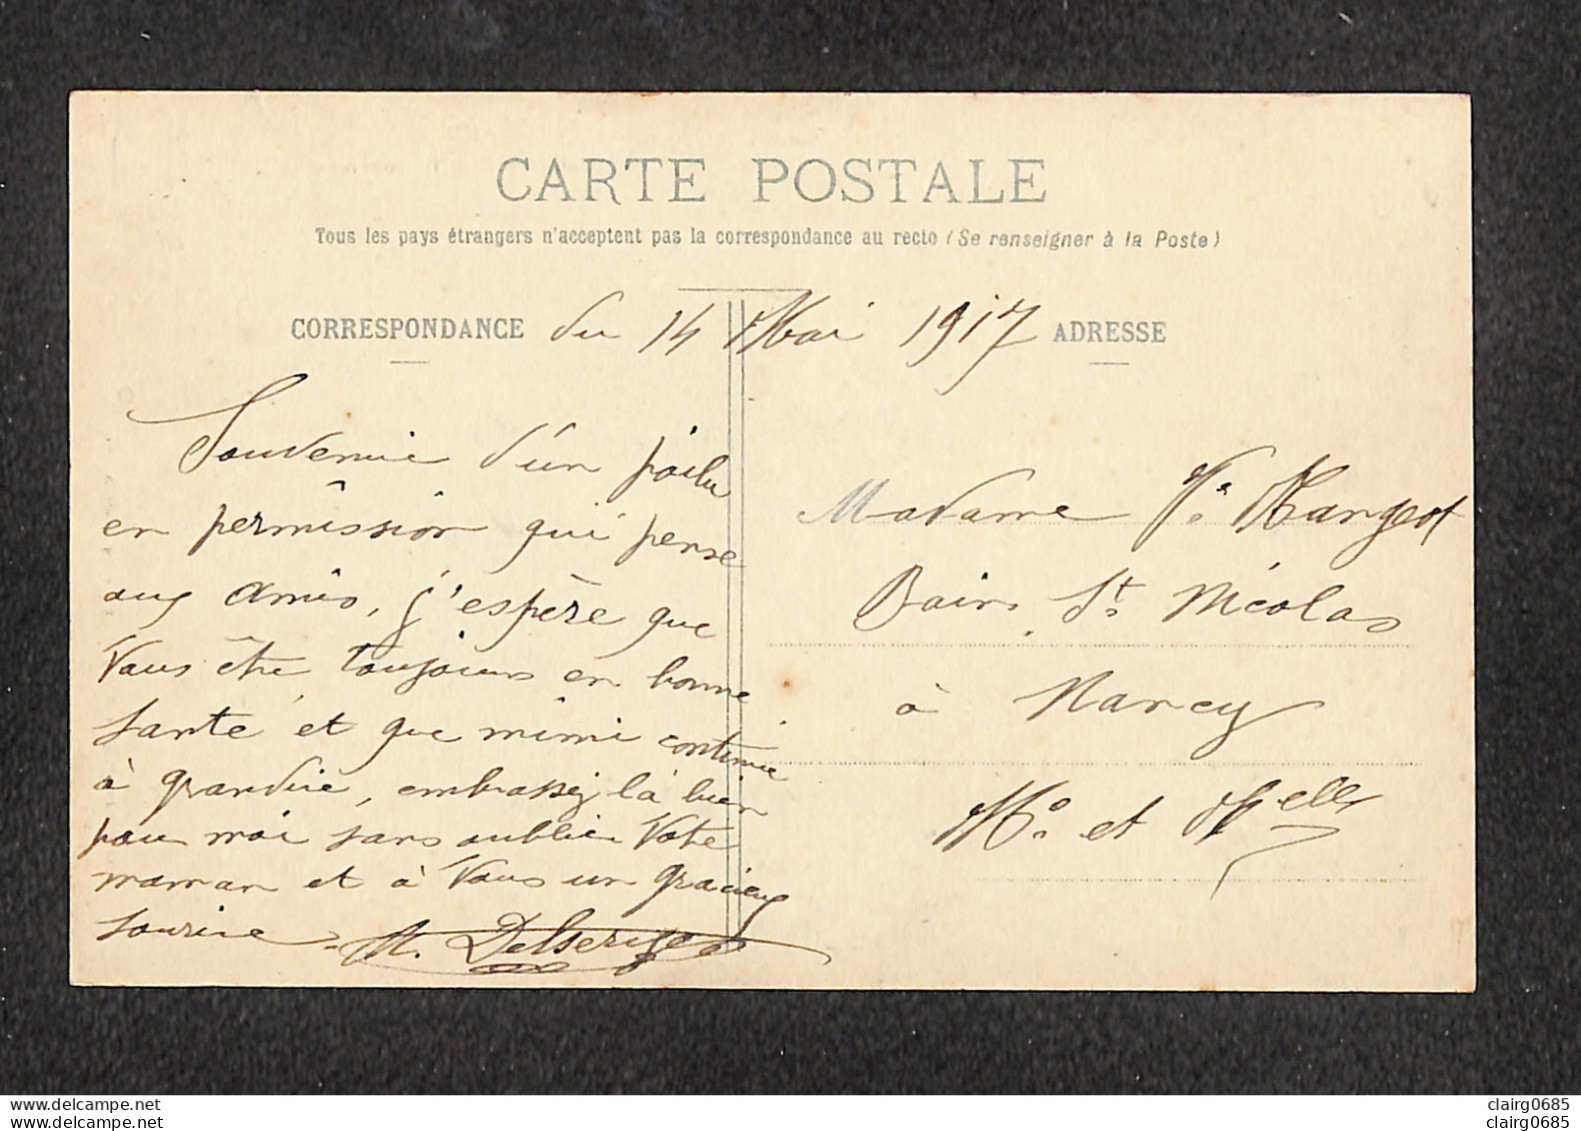 CARTE POSTALE
Tous les pays étrangers n'acceptent pas la correspondance au recto (Se renseigner à la Poste)
CORRESPONDANCE du 14 Mai 1917 ADRESSE
Souvenir d'un poilu
en permission qui pense
aux amis, j'espère que
Vous être toujours en bonne
santé et que mimi continue
à grandire, embrassez là bien
pour moi sans oublier Votre
maman et à Vous un gracieux
sourire
Madame Ve Mangeot
Bains St. Nicolas
à Nancy
Mo. et Melle
delcampe.net
clairg0685
delcampe.net
clairg0685